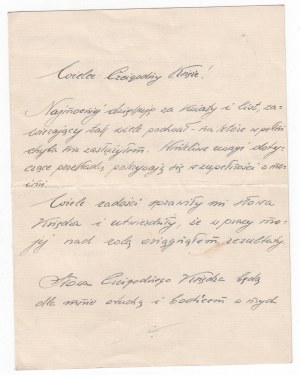 Wielce Czcigodny Księże!
Najmocniej dziękuję za kwiaty i list, za-
wierający tak wiele pochwał - na które w pełni
chyba nie zasłużyłem. Wnikliwe uwagi doty-
czące przekładu, pokrywają się w zupełności z mo-
imi.
Wiele radości sprawiły mi słowa
Księdza i utwierdziły, że w pracy mo-
jej nad rolą osiągnąłem rezultaty.
Słowa Czcigodnego Księdza będą
dla mnie otuchą i bodźcem w mych